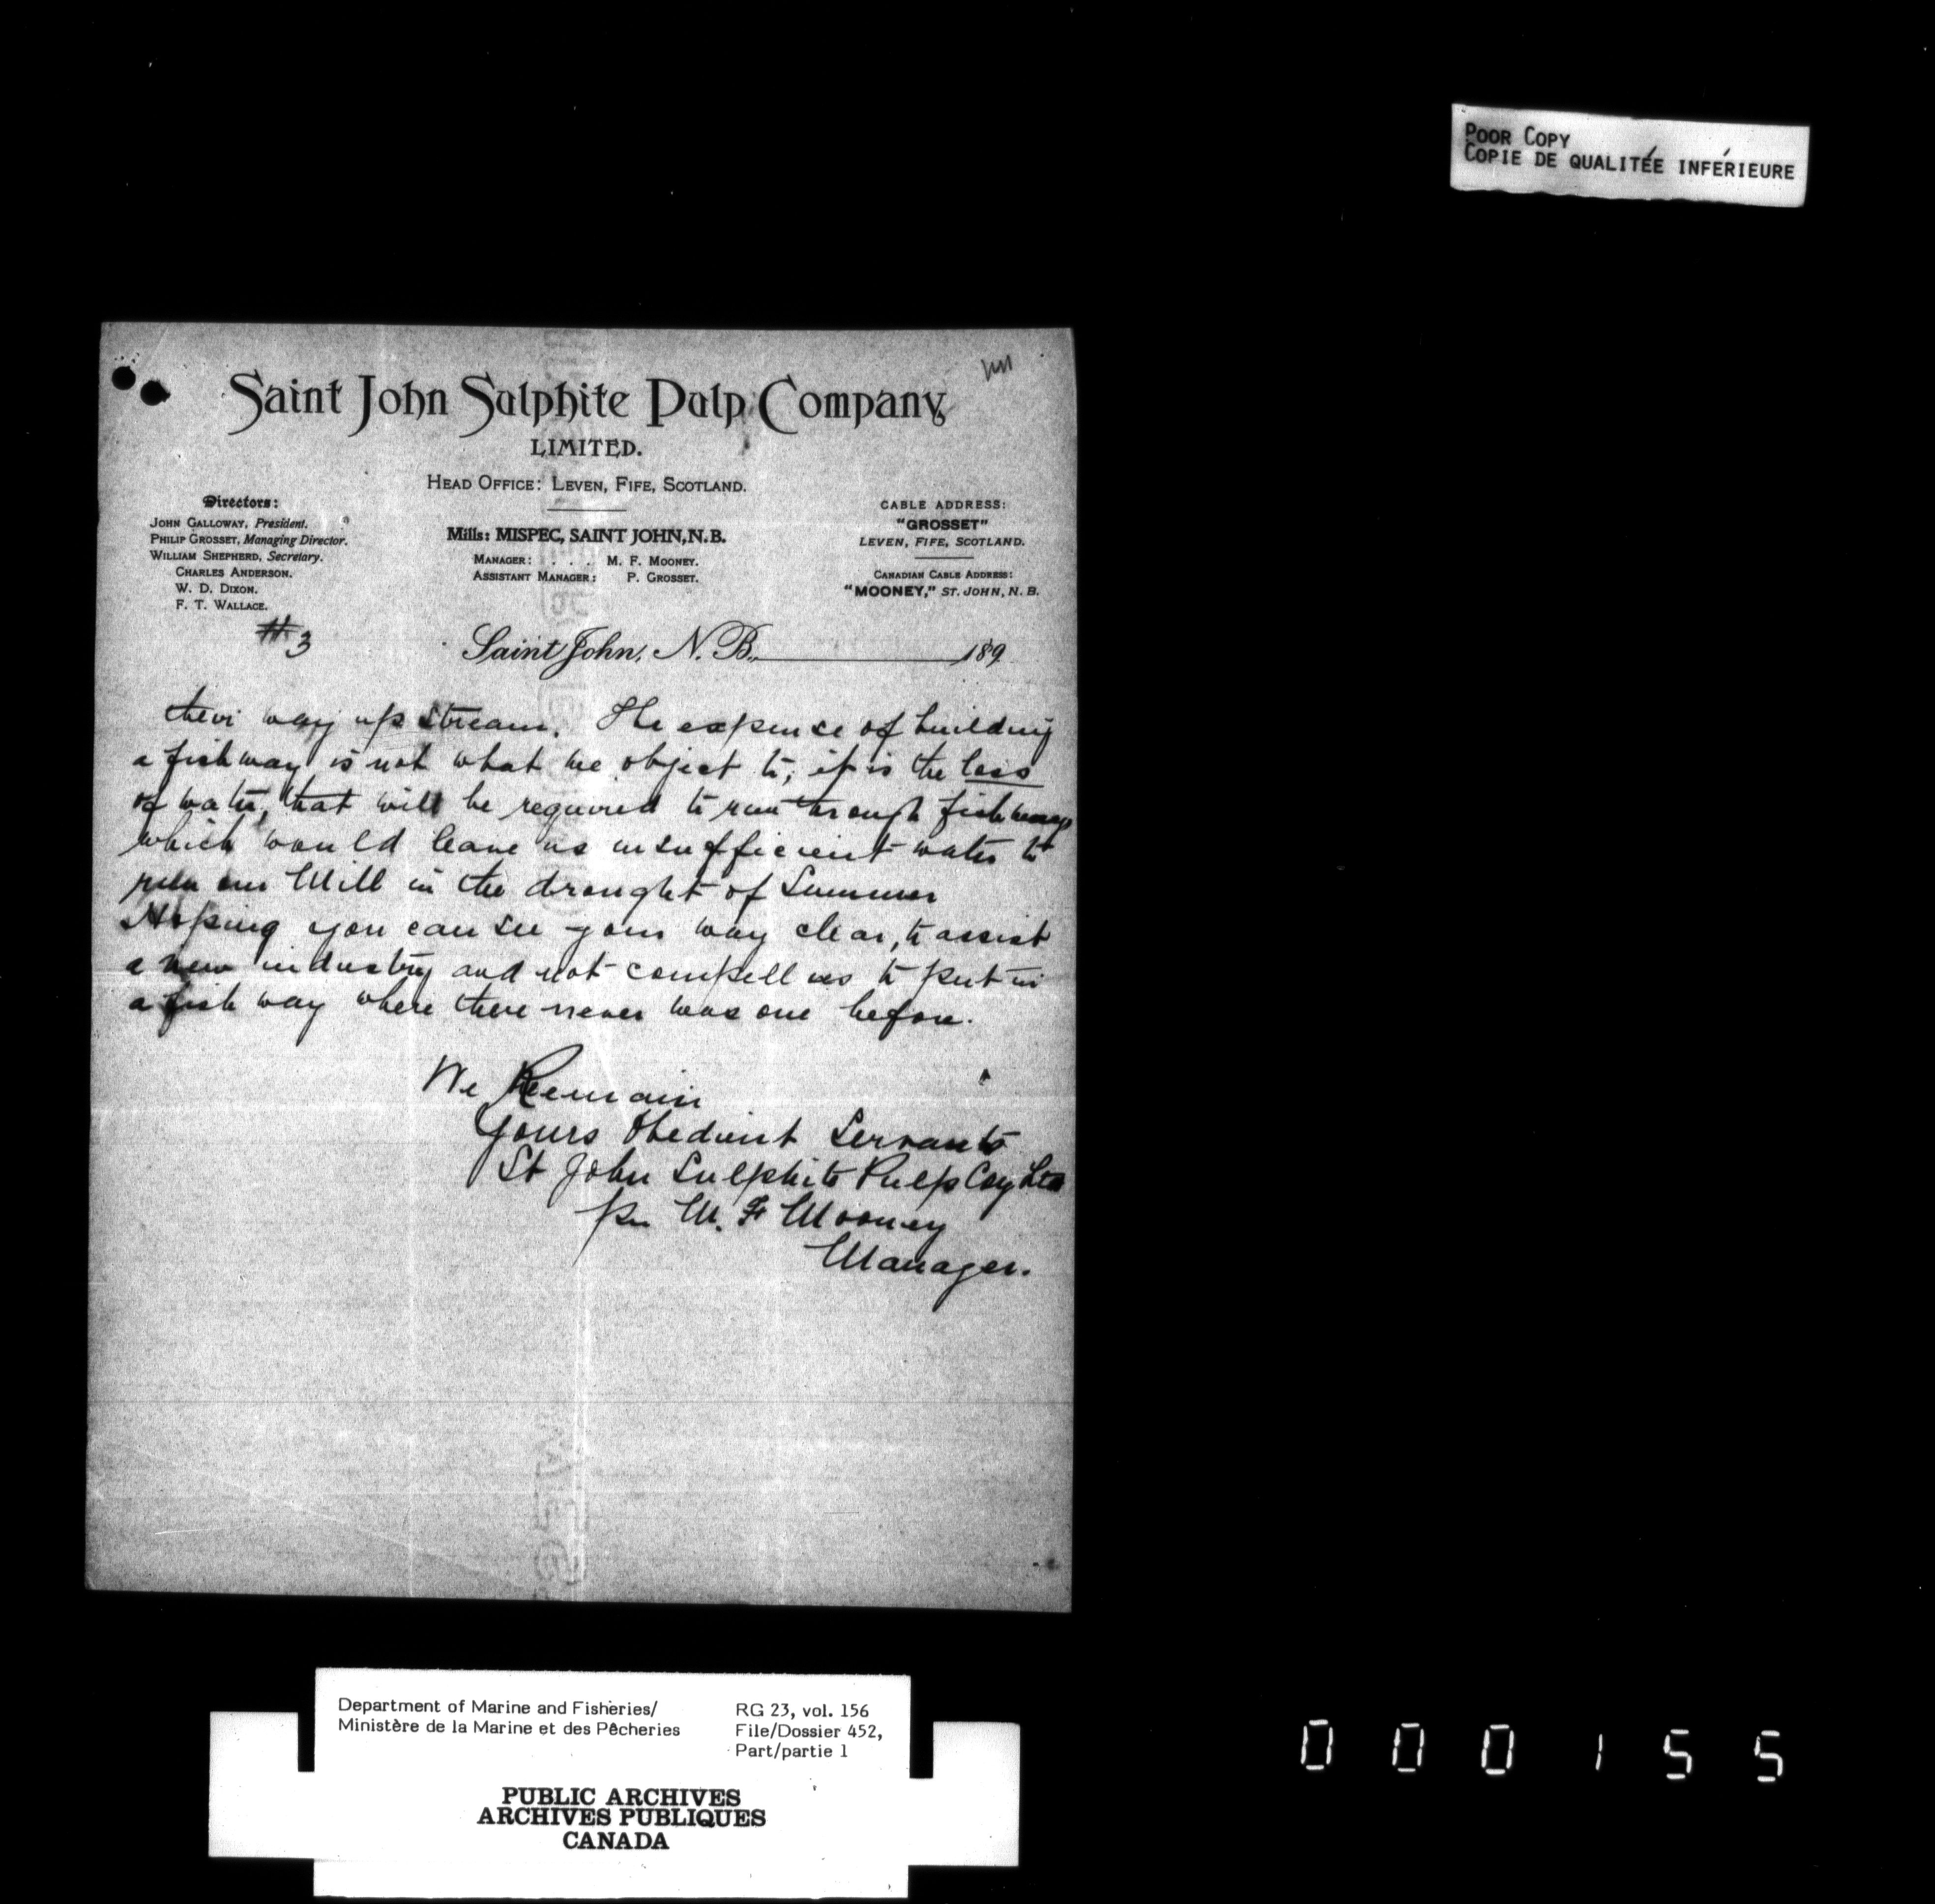 POOR COPY
COPIE DE QUALITÉE INFÉRIEURE
Saint John Sulphite Pulp Company,
LIMITED.
HEAD OFFICE: LEVEN, FIFE, SCOTLAND.
Directors:
JOHN GALLOWAY, President.
PHILIP GROSSET, Managing Director.
WILLIAM SHEPHERD, Secretary.
CHARLES ANDERSON.
W. D. DIXON.
F. T. WALLACE.
Mills: MISPEC, SAINT JOHN, N.B.
MANAGER: . . . M. F. MOONEY.
ASSISTANT MANAGER: P. GROSSET.
CABLE ADDRESS:
"GROSSET"
LEVEN, FIFE, SCOTLAND.
CANADIAN CABLE ADDRESS:
"MOONEY," ST. JOHN, N. B.
#3
Saint John, N. B., 189
their way up stream. The expence of building
a fishway is not what we object to, it is the loss
of water, that will be required to run through fishway
which would leave us insufficient water to
run our Mill in the drought of Summer
Hoping you can see your way clear, to assist
a new industry and not compell us to put in
a fish way where there never was one before.
We Remain
Yours Obedient Servants
St John Sulphite Pulp Coy Ltd
Per M. F Mooney
Manager.
Department of Marine and Fisheries/
Ministère de la Marine et des Pêcheries
RG 23, vol. 156
File/Dossier 452,
Part/partie 1
PUBLIC ARCHIVES
ARCHIVES PUBLIQUES
CANADA
000155